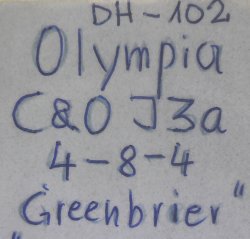 DH-102
Olympia
C&O J3a
4-8-4
"Greenbrier"